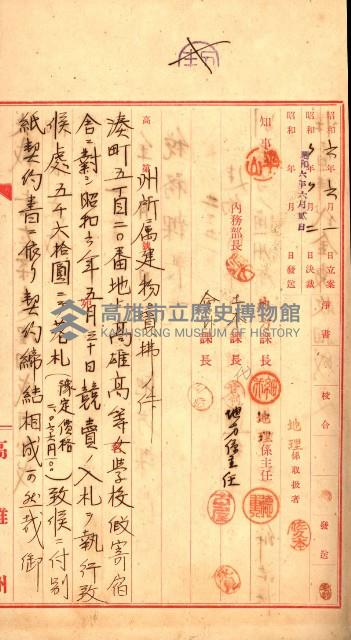 昭和六年六月一日立案
昭和 年 月 日決裁
昭和六年六月貳日
昭和 年 月 日發送
淨書
校合
發送
知事
內務部長
土木課長
會計課長
地理係主任
地方係主任
地理係取扱者
佐々木
高 第 號
州所屬建物賣拂ノ件
湊町五丁目二〇番地元高雄高等女學校假寄宿
舍ニ對シ昭和六年五月三十日競賣入札ヲ執行致
候處五千六拾圓ニ落札(豫定價格二〇七六円〇〇)致候ニ付別
紙契約書ニ依リ契約締結相成可然哉御
高雄州
高雄市立歷史博物館
KAOHSIUNG MUSEUM OF HISTORY